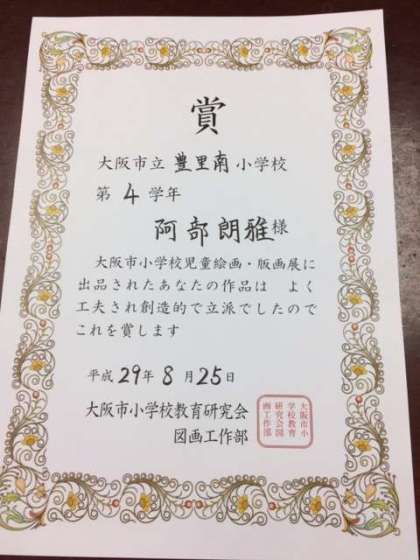 賞
大阪市立 豊里南 小学校
第 4 学年
阿部朗雅様
大阪市小学校児童絵画・版画展に
出品されたあなたの作品は よく
工夫され創造的で立派でしたので
これを賞します
平成 29年 8 月 25日
大阪市小学校教育研究会
図画工作部
大阪市小
学校教育
研究会図
画工作部